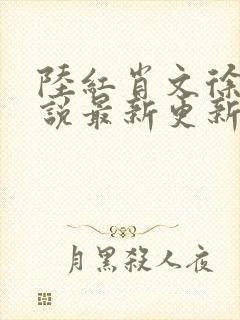 陸紅肖文徐
說最新更新
月黑殺人夜